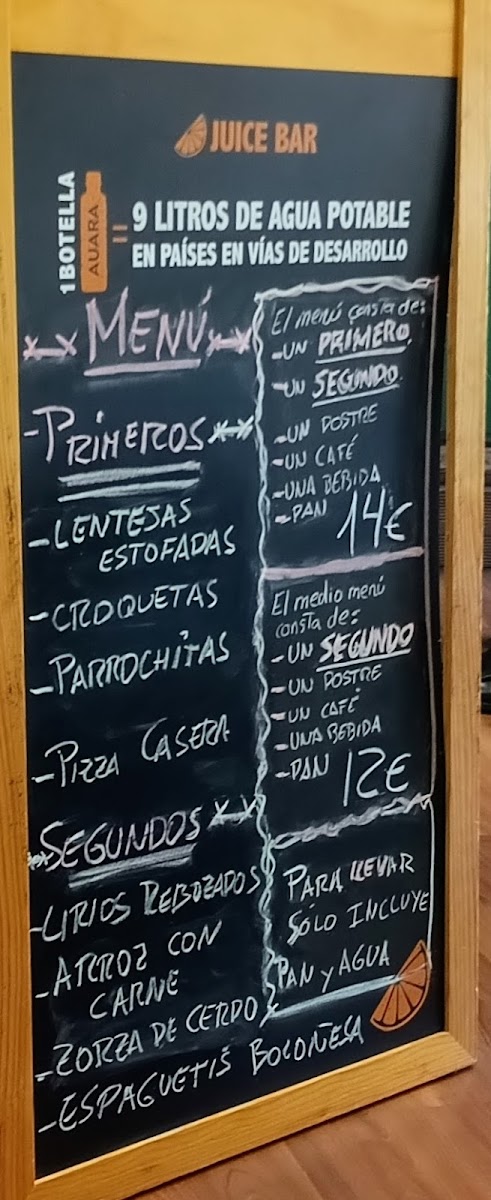 JUICE BAR
1 BOTELLA
AUARA
=
9 LITROS DE AGUA POTABLE
EN PAÍSES EN VÍAS DE DESARROLLO
MENÚ
-PRIMEROS
-LENTEJAS
ESTOFADAS
-CROQUETAS
-PARROCHITAS
-PIZZA CASERA
SEGUNDOS
-LIRIOS REBOZADOS
-ARROZ CON
CARNE
-ZORZA DE CERDO
-ESPAGUETIS BOLOÑESA
El menú consta de:
-UN PRIMERO
-UN SEGUNDO
-UN POSTRE
-UN CAFÉ
-UNA BEBIDA
-PAN 14€
El medio menú
consta de:
-UN SEGUNDO
-UN POSTRE
-UN CAFÉ
-UNA BEBIDA
-PAN 12€
PARA LLEVAR
SÓLO INCLUYE
PAN y AGUA